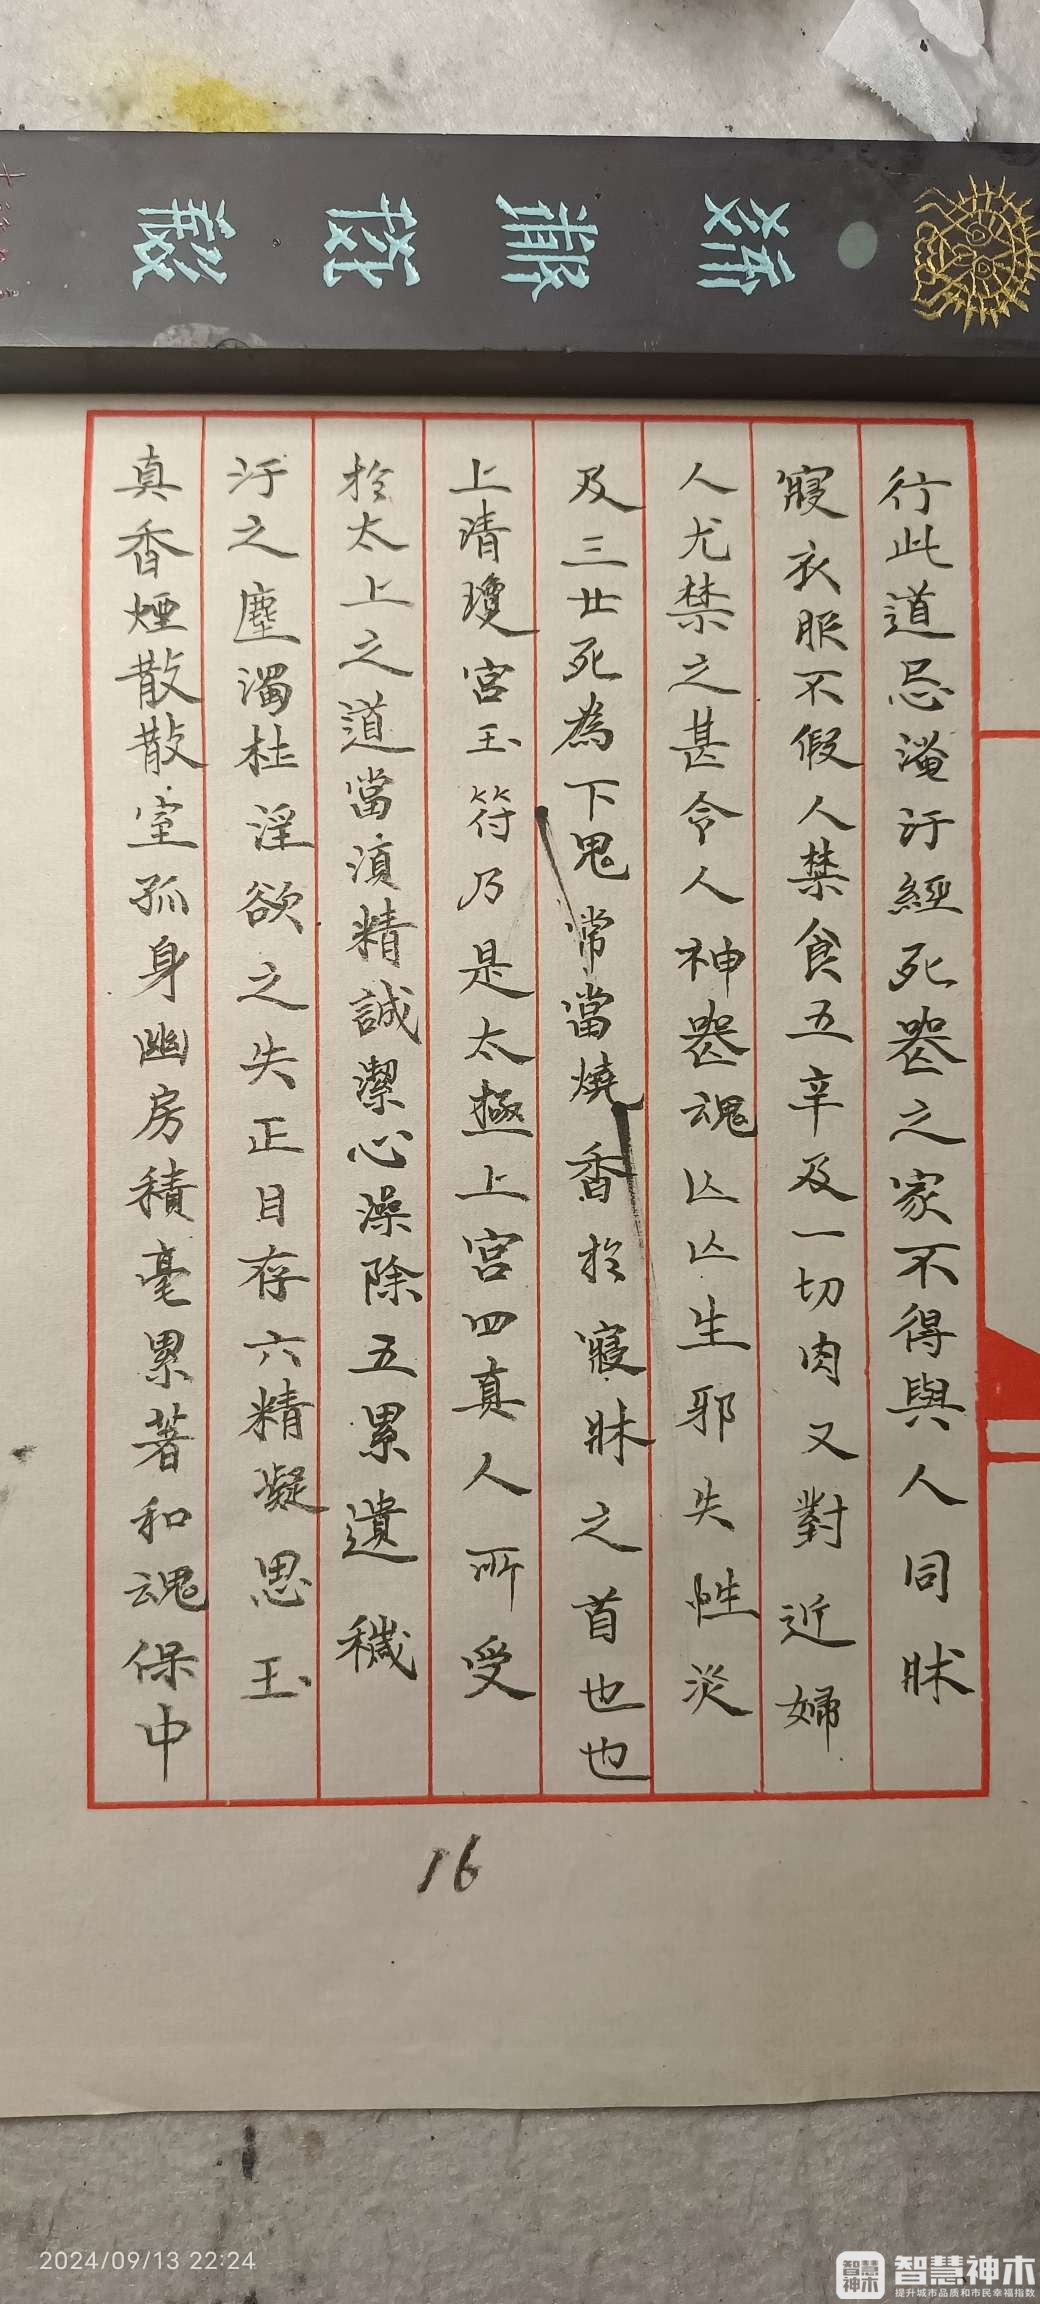 行此道忌淹汙經死喪之家不得與人同牀
寢衣服不假人禁食五辛及一切肉又對近婦
人尤禁之甚令人神喪魂亡亡生邪失性災
及三世死為下鬼常當燒香於寢牀之首也也
上清瓊宮玉符乃是太極上宮四真人所受
於太上之道當須精誠潔心澡除五累遺穢
汙之塵濁杜淫欲之失正目存六精凝思玉
真香煙散散室孤身幽房積毫累著和魂保中
16
2024/09/13 22:24
智慧神木
智慧神木
提升城市品质和市民幸福指数